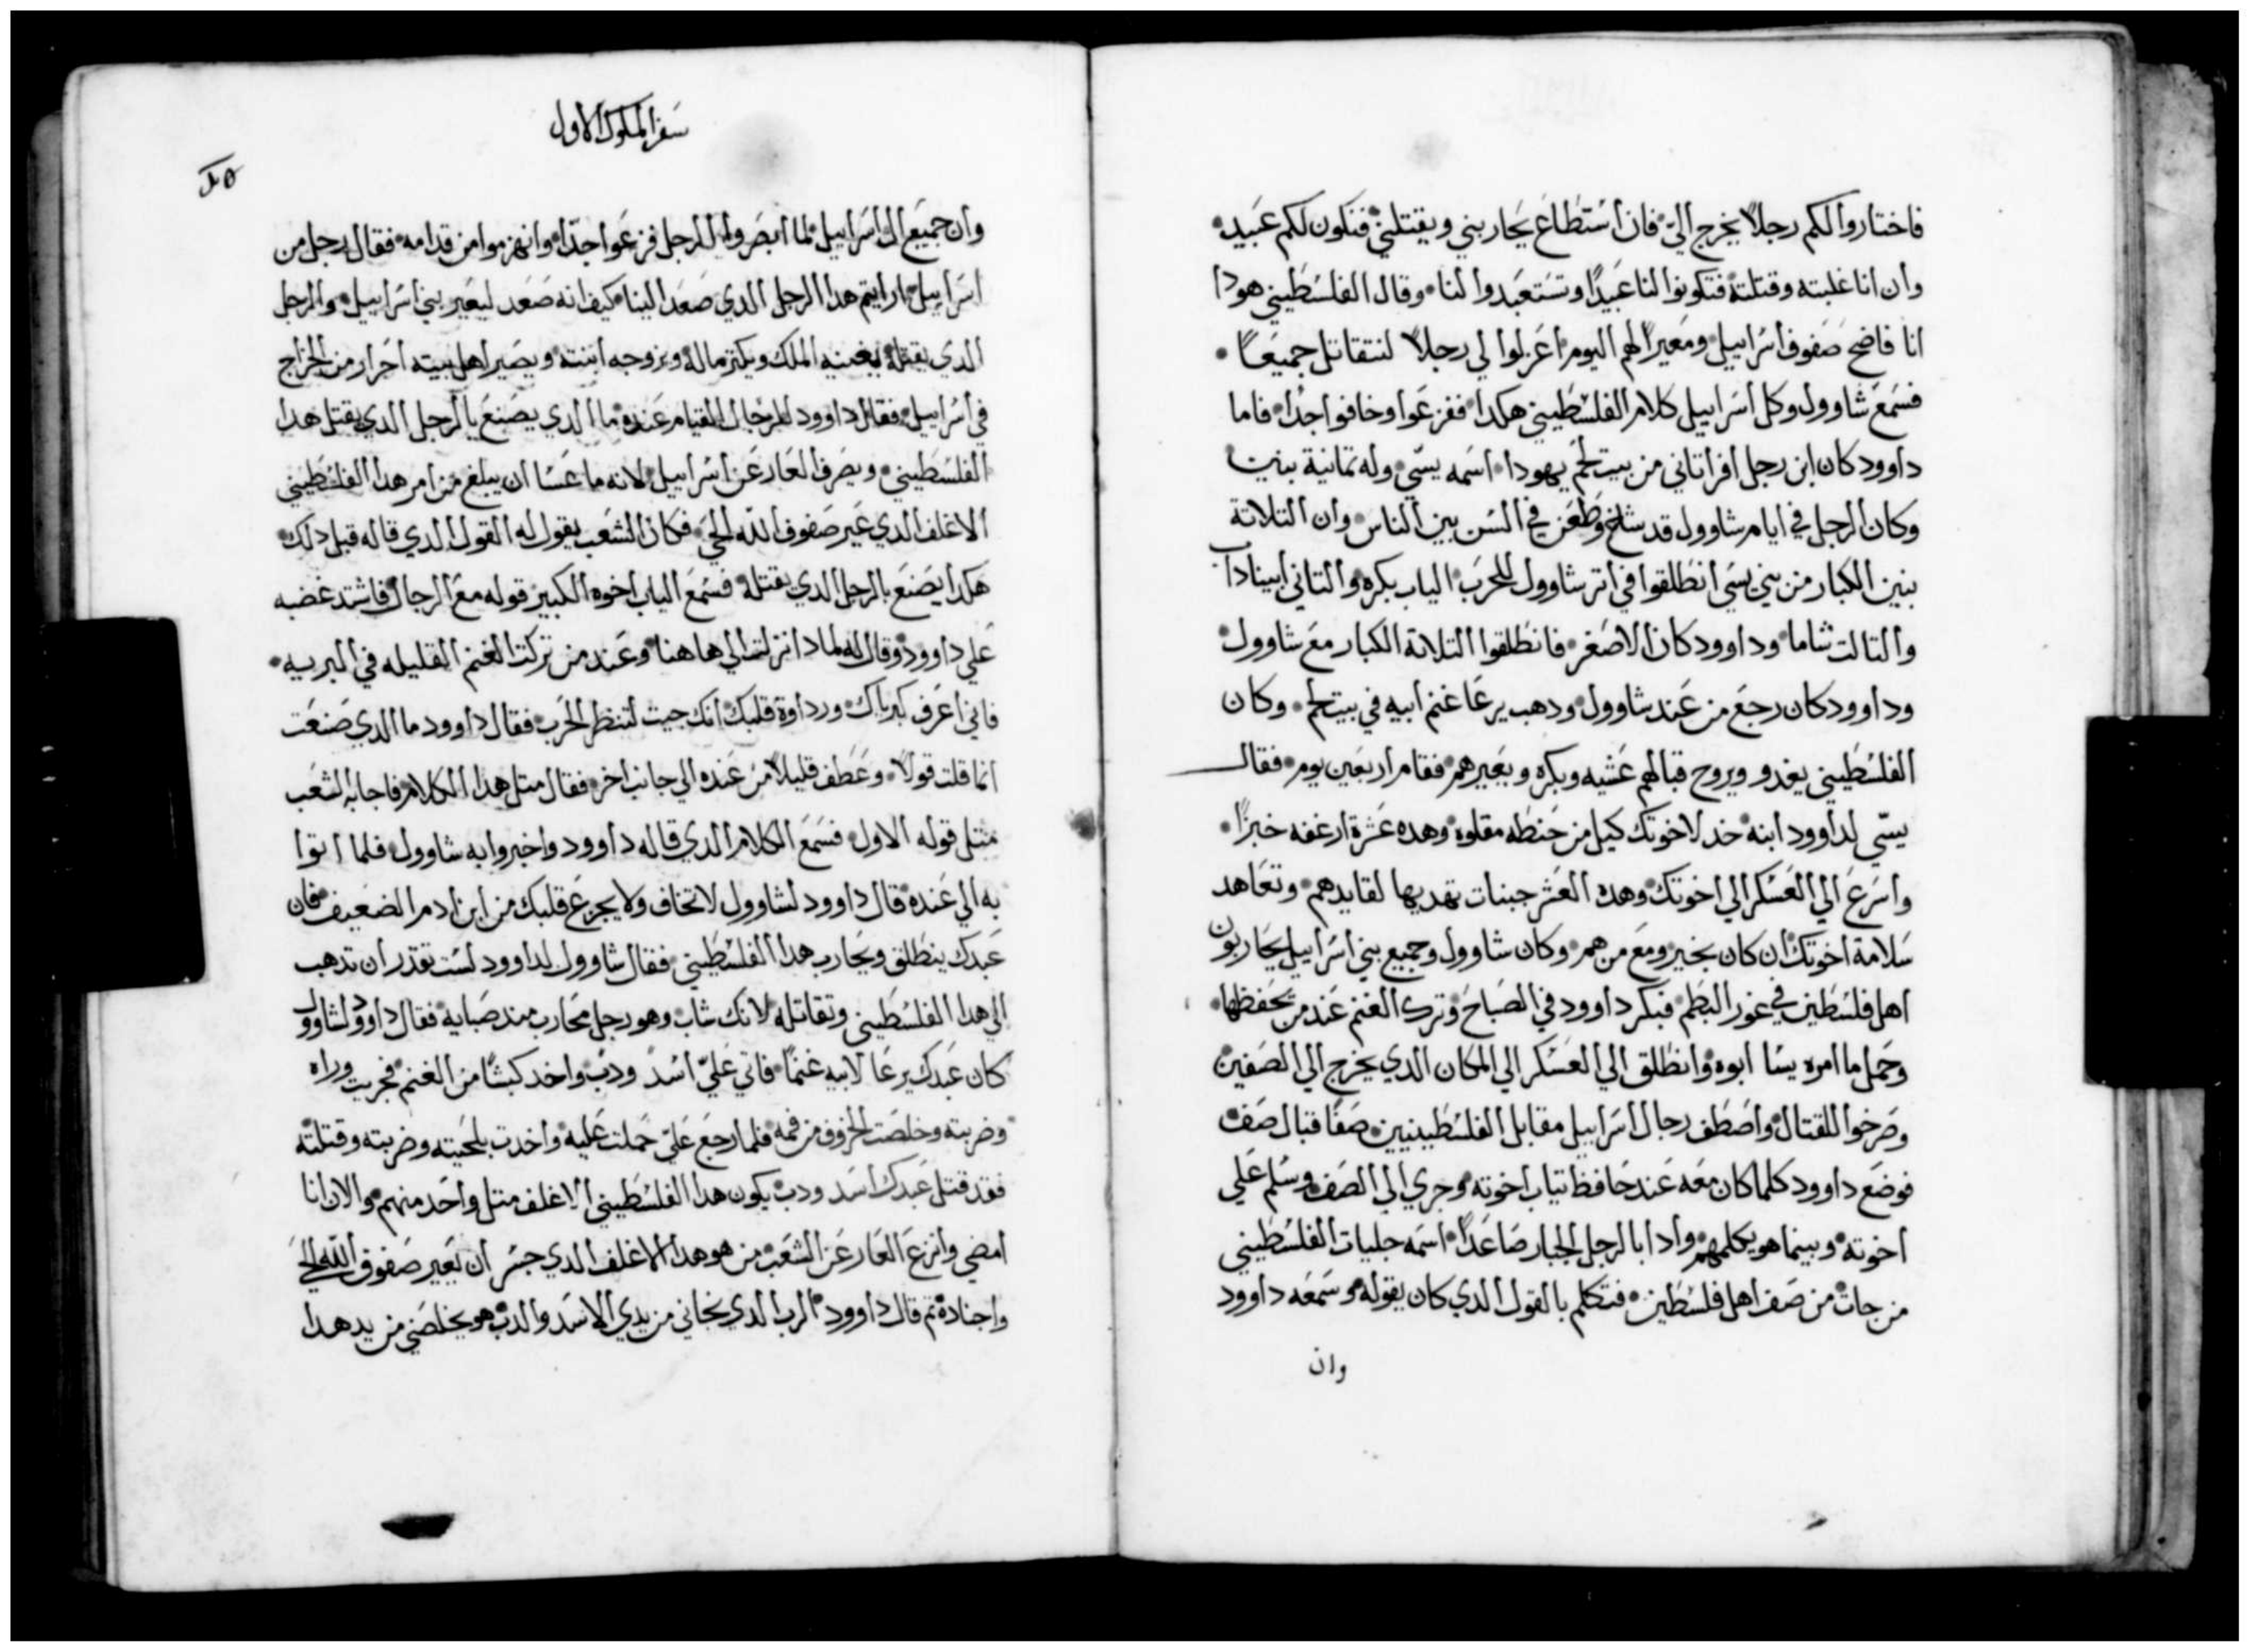 فاختاروا لكم رجلاً يخرج اليّ فان استطاع يحاربني ويقتلني فنكون لكم عبيد
وان انا غلبته وقتلته فتكونوا لنا عبيدًا وتستعبدوا لنا وقال الفلسطيني هودا
انا فاضح صفوف اسراييل ومعيرًا لهم اليوم اعزلوا لي رجلاً لنتقاتل جميعًا
فسمع شاوول وكل اسراييل كلام الفلسطيني هكدا ففزعوا وخافوا جدًا فاما
داوود كان ابن رجل افراتاني من بيت لحم يهودا اسمه يسّي وله تمانية بنين
وكان الرجل في ايام شاوول قد شاخ وطعن في السن بين الناس وان التلاتة
بنين الكبار من بني يسي انطلقوا في اتر شاوول للحرب الياب بكره والتاني ابيناداب
والتالت شاما وداوود كان الاصغر فانطلقوا التلاتة الكبار مع شاوول
وداوود كان رجع من عند شاوول ودهب يرعا غنم ابيه في بيت لحم وكان
الفلسطيني يغدو ويروح قبالهم عشيه وبكره ويعيرهم فقام اربعين يوم فقال
يسّي لداوود ابنه خد لاخوتك كيل من حنطه مقلوه وهده عشرة ارغفه خبزًا
واسرع الي العسكر الي اخوتك وهده العشر جبنات تهديها لقايدهم وتعاهد
سلامة اخوتك ان كان بخير ومع من هم وكان شاوول وجميع بني اسراييل يحاربون
اهل فلسطين في غور البطم فبكر داوود في الصباح وترك الغنم عند من يحفظها
وحمل ما امره يسّا ابوه وانطلق الي العسكر الي المكان الدي يخرج الي الصفين
وصرخوا للقتال واصطف رجال اسراييل مقابل الفلسطينيين صفًا قبال صف
فوضع داوود كلما كان معه عند حافظ تياب اخوته وجري الي الصف وسلم علي
اخوته وبينما هو يكلمهم وادا بالرجل الجبار صاعدًا اسمه جليات الفلسطيني
من جات من صف اهل فلسطين فتكلم بالقول الدي كان يقوله وسمعه داوود
وان
سفر الملوك الاول
وان جميع ال اسراييل لما ابصروا الرجل فزعوا جدًا وانهزموا من قدامه فقال رجل من
اسراييل ارايتم هدا الرجل الدي صعد الينا كيف انه صعد ليعير بني اسراييل والرجل
الدي يقتله يغنيه الملك ويكتر ماله ويزوجه ابنته ويصير اهل بيته احرار من الخراج
في اسراييل فقال داوود للرجال القيام عنده ما الدي يصنع بالرجل الدي يقتل هدا
الفلسطيني ويصرف العار عن اسراييل لانه ما عسا ان يبلغ من امر هدا الفلسطيني
الاغلف الدي عير صفوف الله الحي فكان الشعب يقول له القول الدي قاله قبل دلك
هكدا يصنع بالرجل الدي يقتله فسمع الياب اخوه الكبير قوله مع الرجال فاشتد غضبه
علي داوود وقال له لمادا نزلت الي هاهنا وعند من تركت الغنم القليله في البريه
فاني اعرف كبرياك ورداوة قلبك انك جيت لتنظر الحرب فقال داوود ما الدي صنعت
انما قلت قولاً وعطف قليلاً من عنده الي جانب اخر فقال متل هدا الكلام فاجابه الشعب
متل قوله الاول فسمع الكلام الدي قاله داوود واخبروا به شاوول فلما اتوا
به الي عنده قال داوود لشاوول لا تخاف ولا يجزع قلبك من ابن ادم الضعيف فان
عبدك ينطلق ويحارب هدا الفلسطيني فقال شاوول لداوود لست تقدر ان تدهب
الي هدا الفلسطيني وتقاتله لانك شاب وهو رجل محارب مند صبايه فقال داوود لشاوول
كان عبدك يرعا لابيه غنمًا فاتي عليّ اسد ودب واخد كبشًا من الغنم فجريت وراه
وضربته وخلصت الخروف من فمه فلما رجع عليّ حملت عليه واخدت بلحيته وضربته وقتلته
فقد قتل عبدك اسد ودب يكون هدا الفلسطيني الاغلف متل واحد منهم والان انا
امضي وانزع العار عن الشعب من هو هدا الاغلف الدي جسر ان يعير صفوف الله الحي
واجناده تم قال داوود الرب الدي نجاني من يدي الاسد والدب هو يخلصني من يد هدا